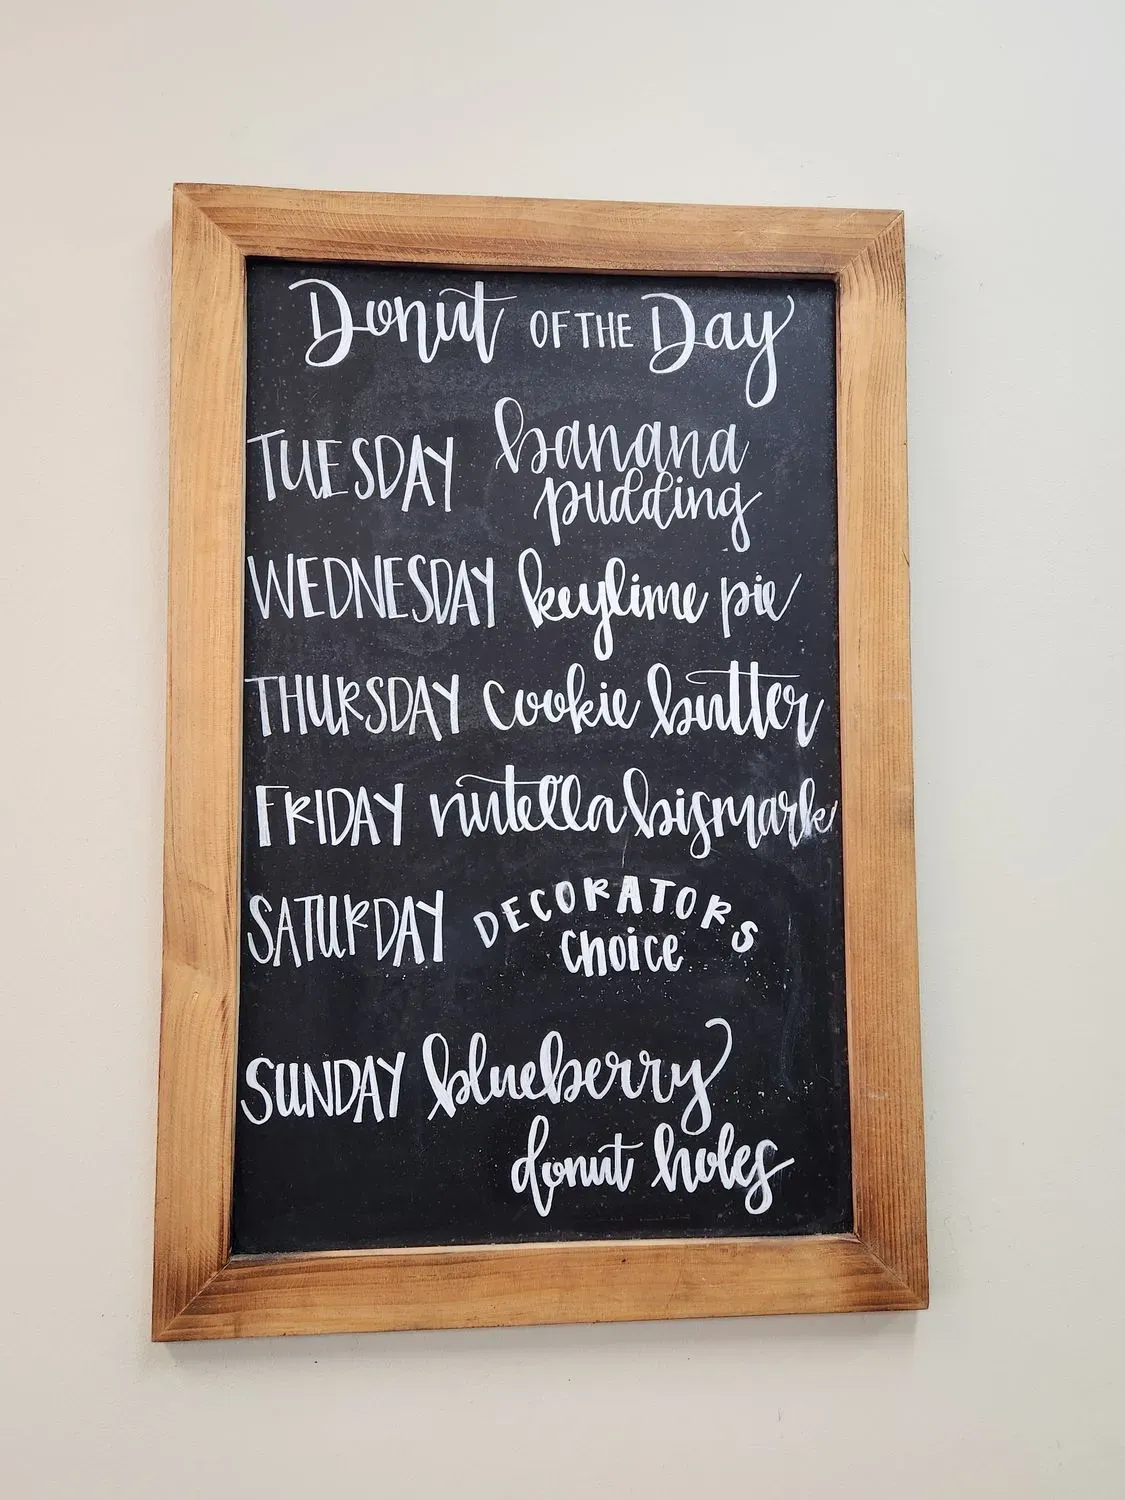 Donut OF THE Day
TUESDAY banana
pudding
WEDNESDAY keylime pie
THURSDAY cookie butter
FRIDAY nutella bismark
SATURDAY DECORATORS
choice
SUNDAY blueberry
donut holes